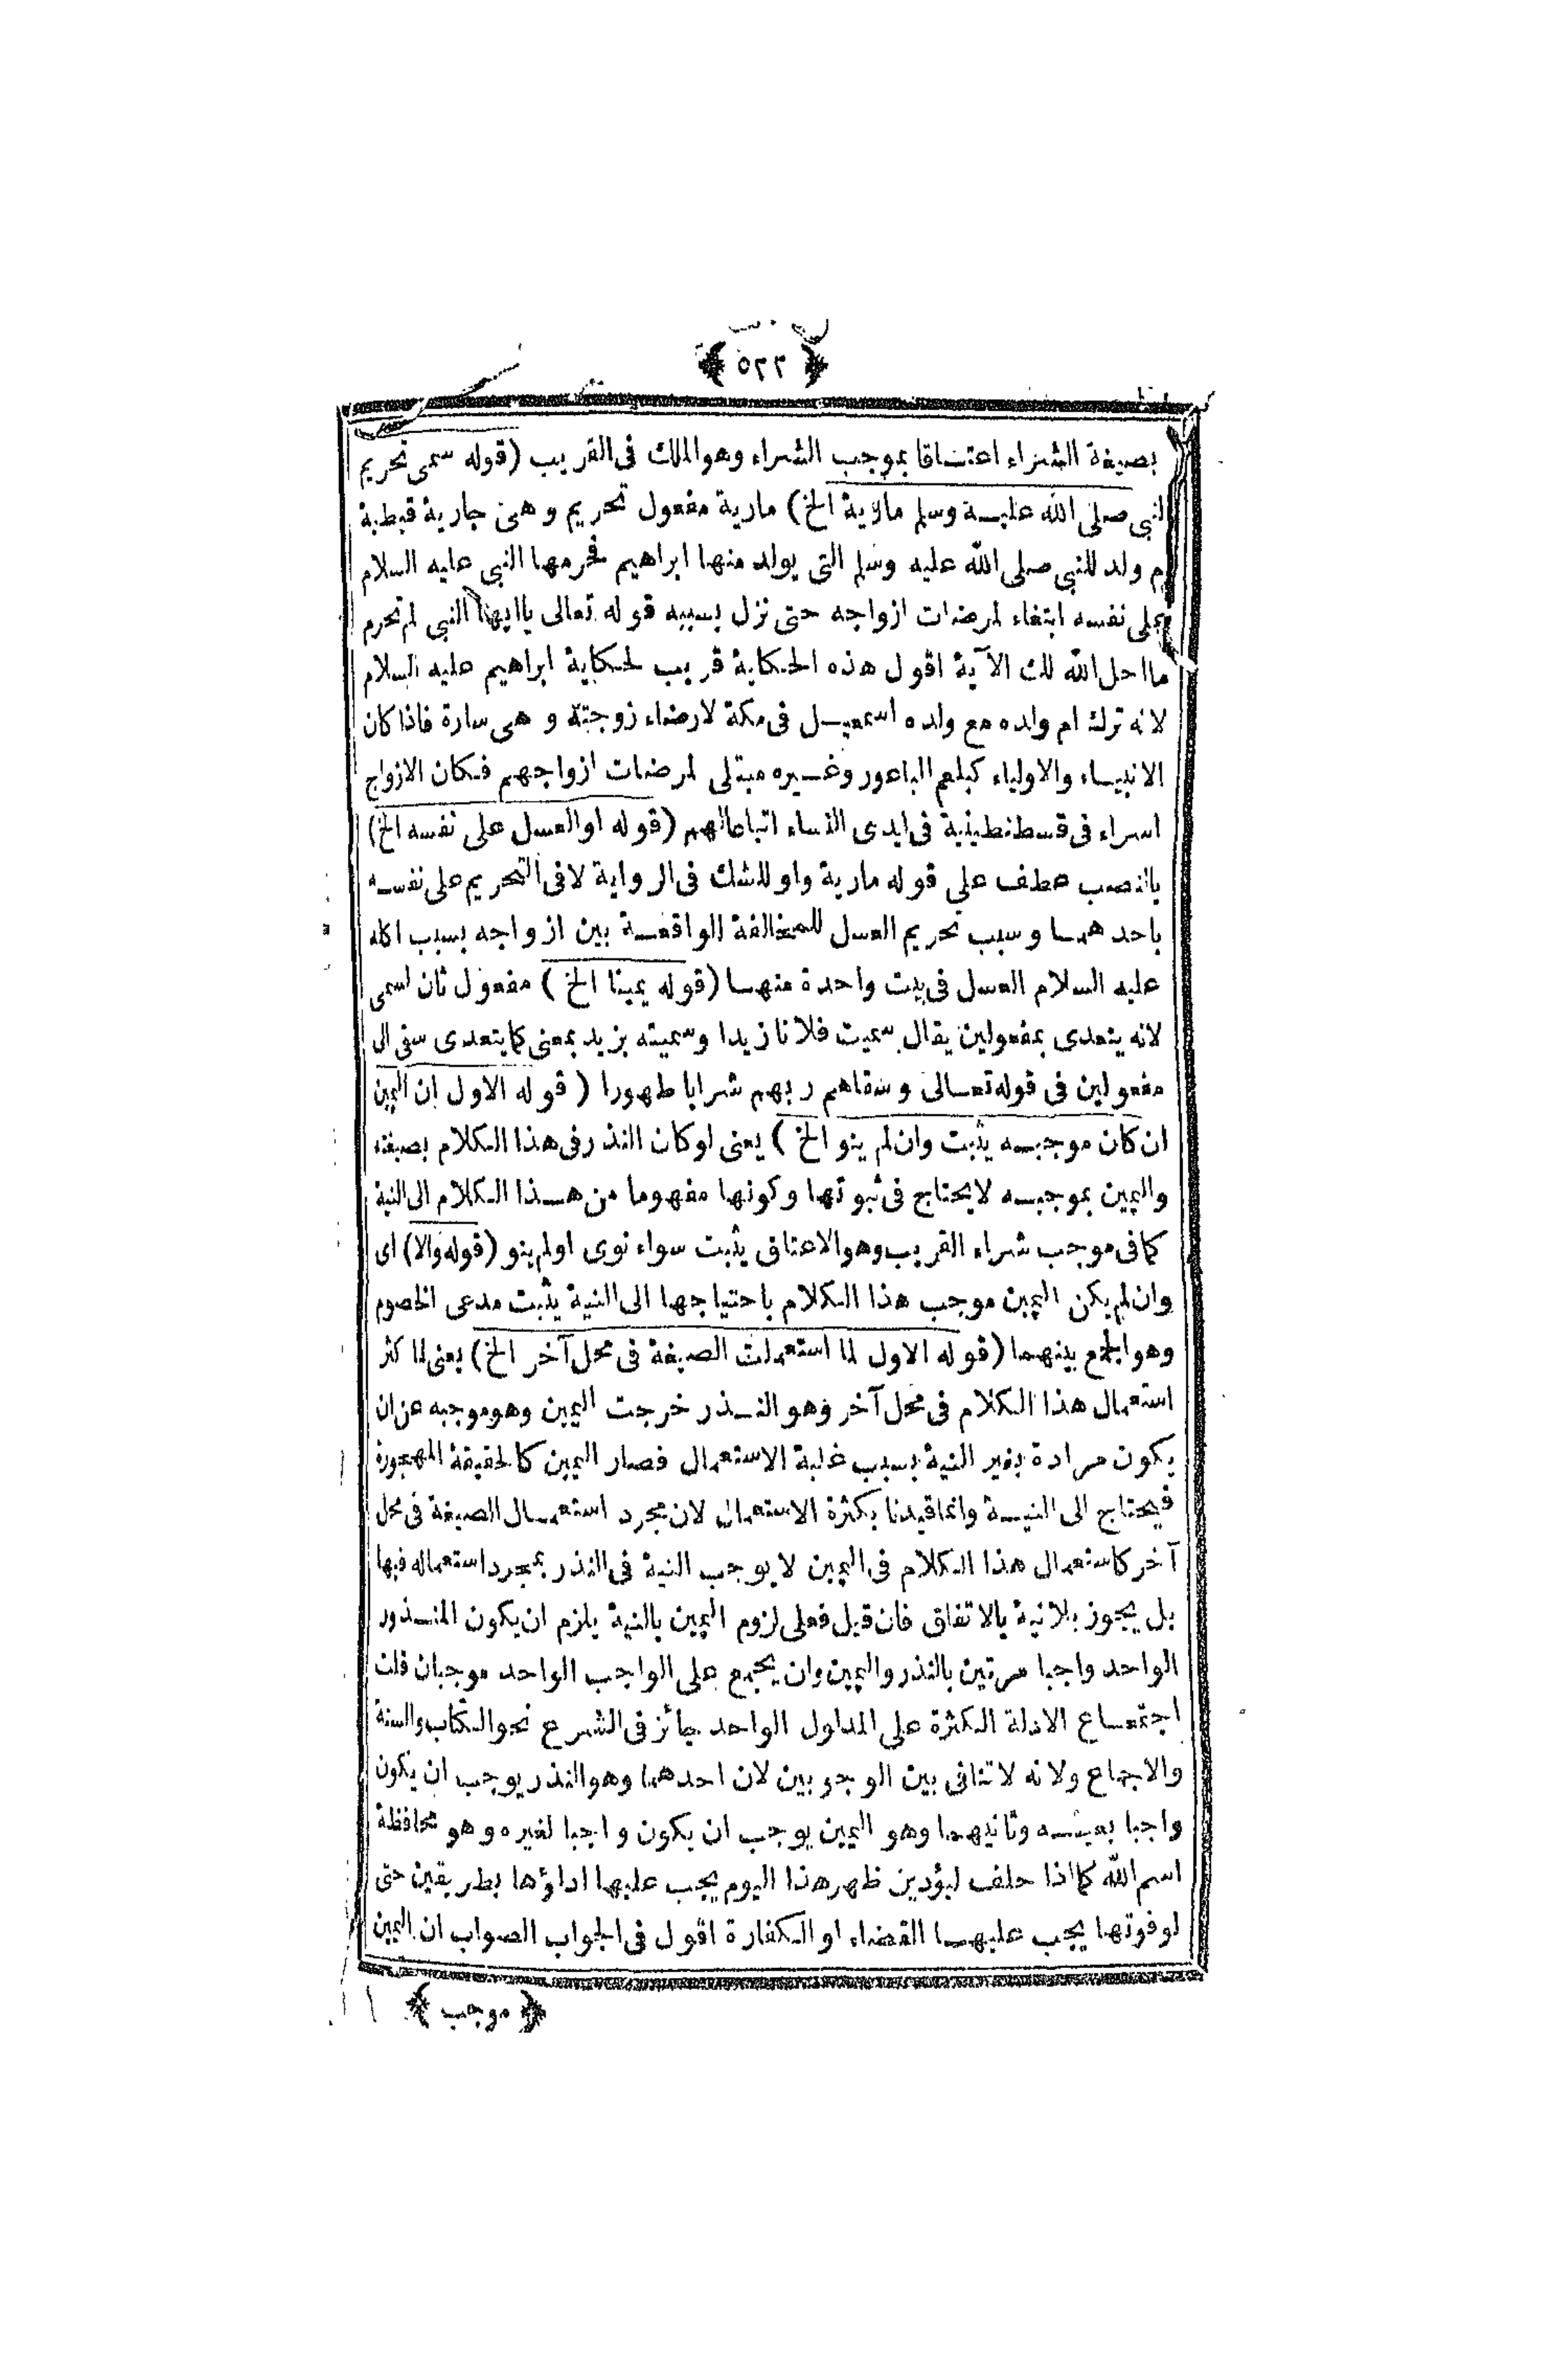 ﴿ ٥٢٢ ﴾
بصيغة الشراء اعتاقا بموجب الشراء وهو الملك فى القريب (قوله سمى تحريم
النبى صلى الله عليه وسلم مارية الخ) مارية مفعول تحريم وهى جارية قبطية
ام ولد للنبى صلى الله عليه وسلم التى يولد منها ابراهيم فحرمها النبى عليه السلام
على نفسه ابتغاء لمرضات ازواجه حتى نزل بسببه قوله تعالى ياايها النبى لم تحرم
ما احل الله لك الآية اقول هذه الحكاية قريب لحكاية ابراهيم عليه السلام
لانه ترك ام ولده مع ولده اسمعيل فى مكة لارضاء زوجته وهى سارة فاذا كان
الانبياء والاولياء كبلعم الباعور وغيره مبتلى لمرضات ازواجهم فكان الازواج
اسراء فى قسطنطينية فى ايدى النساء اتباعا لهم (قوله او العسل على نفسه الخ)
بالنصب عطف على قوله مارية واو للشك فى الرواية لا فى التحريم على نفسه
باحدهما وسبب تحريم العسل للمخالفة الواقعة بين ازواجه بسبب اكله
عليه السلام العسل فى بيت واحدة منها (قوله يمينا الخ) مفعول ثان لسمى
لانه يتعدى بمفعولين يقال سميت فلانا زيدا وسميته بزيد بمعنى كما يتعدى سقى الى
مفعولين فى قوله تعالى وسقاهم ربهم شرابا طهورا (قوله الاول ان اليمين
ان كان موجبه يثبت وان لم ينو الخ) يعنى لو كان النذر فى هذا الكلام بصيغته
واليمين بموجبه لا يحتاج فى ثبوتها وكونها مفهوما من هذا الكلام الى النية
كما فى موجب شراء القريب وهو الاعتاق يثبت سواء نوى او لم ينو (قوله والا) اى
وان لم يكن اليمين موجب هذا الكلام باحتياجها الى النية يثبت مدعى الخصوم
وهو الجمع بينهما (قوله الاول لما استعملت الصيغة فى محل آخر الخ) يعنى لما كثر
استعمال هذا الكلام فى محل آخر وهو النذر خرجت اليمين وهو موجبه عن ان
يكون مرادة بغير النية بسبب غلبة الاستعمال فصار اليمين كالحقيقة المهجورة
فيحتاج الى النية وانما قيدنا بكثرة الاستعمال لان مجرد استعمال الصيغة فى محل
آخر كاستعمال هذا الكلام فى اليمين لا يوجب النية فى النذر بمجرد استعماله فيها
بل يجوز بلا نية بالاتفاق فان قيل فعلى لزوم اليمين بالنية يلزم ان يكون المنذور
الواحد واجبا مرتين بالنذر واليمين وان يجتمع على الواجب الواحد موجبان قلت
اجتماع الادلة الكثرة على المدلول الواحد جائز فى الشرع نحو الكتاب والسنة
والاجماع ولانه لا تنافى بين الوجوبين لان احدهما وهو النذر يوجب ان يكون
واجبا بعينه وثانيهما وهو اليمين يوجب ان يكون واجبا لغيره وهو محافظة
اسم الله كما اذا حلف ليؤدين ظهر هذا اليوم يجب عليها اداؤها بطريقين حتى
لو فوتها يجب عليها القضاء او الكفارة اقول فى الجواب الصواب ان اليمين
﴿ موجب ﴾